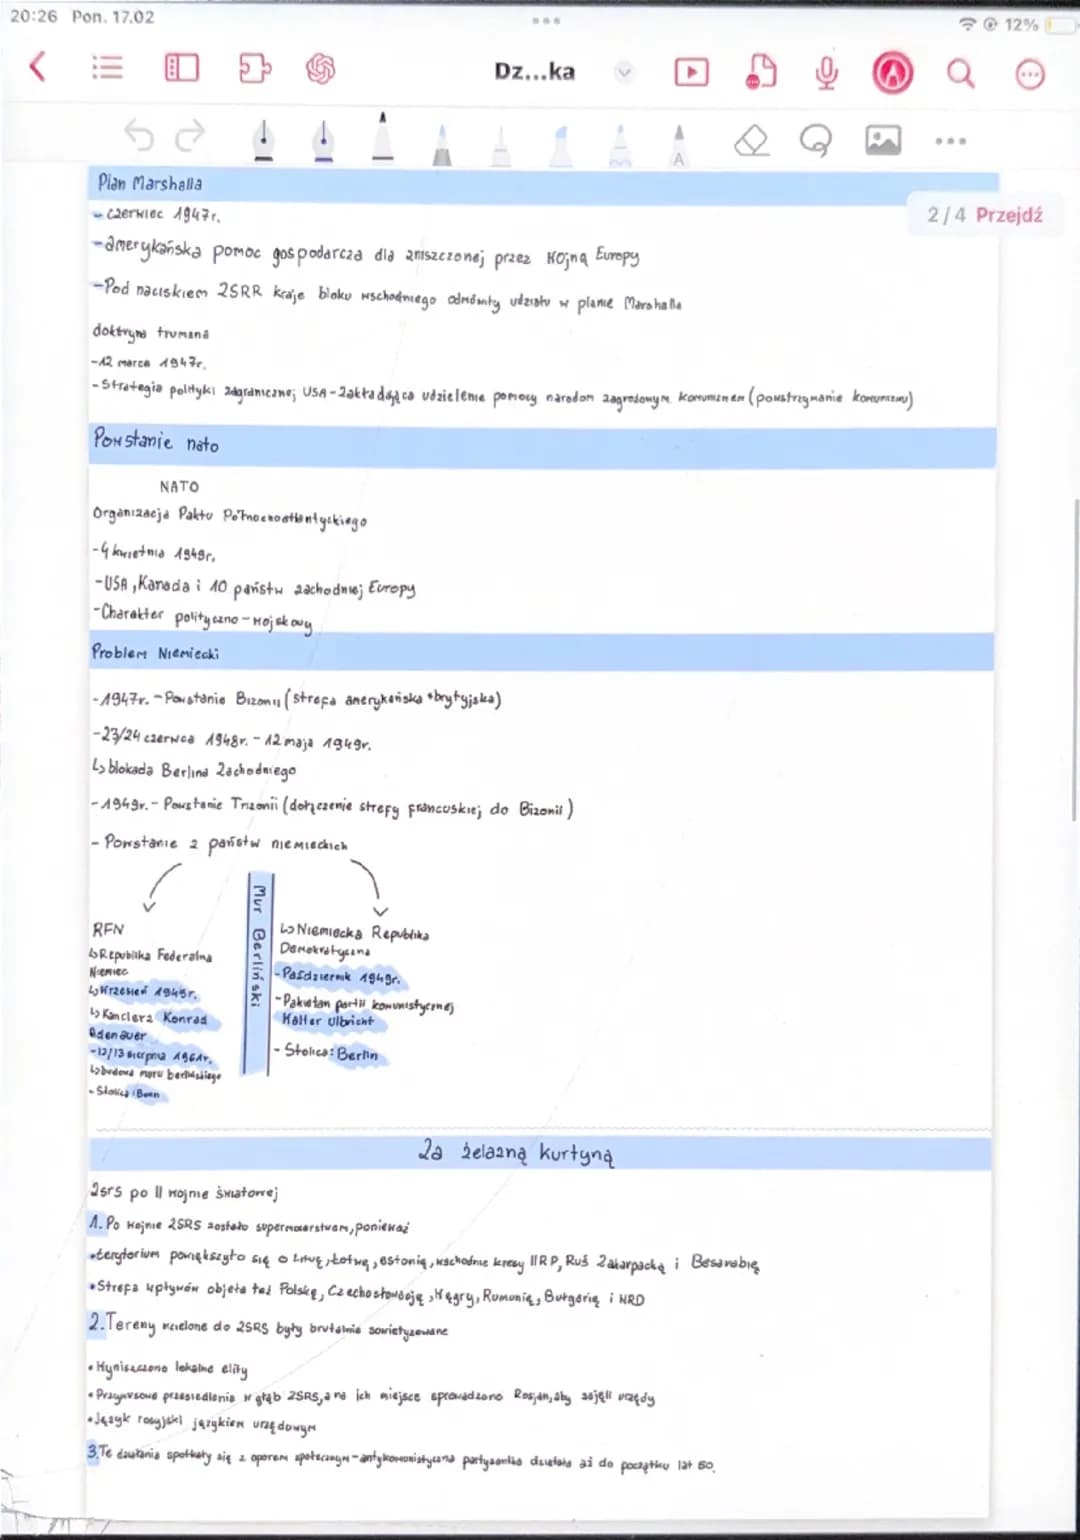 20:26 Pon. 17.02
12%
Dz...ka
A
Plan Marshalla
2/4 Przejdź
- czerwiec 1947r.
-amerykańska pomoc gospodarcza dla zniszczonej przez wojną Europy
-Pod naciskiem ZSRR kraje bloku wschodniego odmówiły udziału w planie Marshalla
doktryna trumana
-12 marca 1947r.
-Strategia polityki zagranicznej USA-zakładająca udzielenie pomocy narodom zagrożonym komunizmem (powstrzymanie komunizmu)
Powstanie nato
NATO
Organizacja Paktu Północnoatlantyckiego
-4 kwietnia 1949r.
-USA, Kanada i 10 państw zachodniej Europy
-Charakter polityczno-wojskowy
Problem Niemiecki
-1947r.-Powstanie Bizonii (strefa amerykańska +brytyjska)
-23/24 czerwca 1948r. - 12 maja 1949r.
↳ blokada Berlina Zachodniego
-1949r.- Powstanie Trizonii (dołączenie strefy francuskiej do Bizonii)
- Powstanie 2 państw niemieckich
RFN
↳Republika Federalna
Niemiec
↳Wrzesień 1949r.
↳Kanclerz Konrad
Adenauer
-12/13 sierpnia 1961r.
↳budowa muru berlińskiego
-Stolica: Bonn
Mur Berliński
↳Niemiecka Republika
Demokratyczna
-Październik 1949r.
-Pakistan partii komunistycznej
Walter Ulbricht
- Stolica: Berlin
Za żelazną kurtyną
Zsrs po II wojnie światowej
1. Po wojnie ZSRS zostało supermocarstwem, ponieważ
•terytorium powiększyło się o Litwę, Łotwę, Estonię, wschodnie kresy II RP, Ruś Zakarpacką i Besarabię
•Strefa wpływów objęła też Polskę, Czechosłowację, Węgry, Rumunię, Bułgarię i NRD
2. Tereny wcielone do ZSRS były brutalnie sowietyzowane
• Wyniszczono lokalne elity
• Przymusowe przesiedlenia w głąb ZSRS, a na ich miejsce sprowadzono Rosjan, aby zajęli urzędy
•Język rosyjski językiem urzędowym
3. Te działania spotkały się z oporem społecznym-antykomunistyczna partyzantka działała aż do początku lat 50.